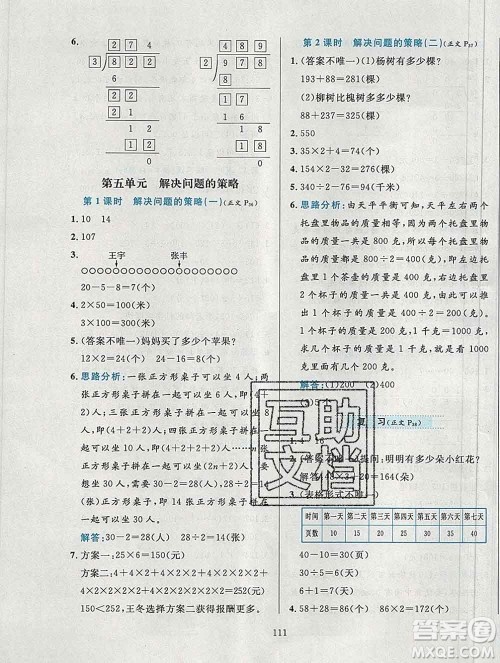 6.
2 7 4
3 8 2 2
6
2 2
2 1
1 2
1 2
0
1 4 6
2 9 3
2
9
8
1 3
1 2
1
第五单元 解决问题的策略
第1课时 解决问题的策略(一)(正文 P36)
1. 10 14
2. 107
3.
王宇 张丰
20-5-8=7(个)
4. 2×50=100(米)
3×50=150(米)
5. (答案不唯一)妈妈买了多少个苹果?
12×2=24(个) 24-16=8(个)
6. 思路分析:一张正方形桌子可以坐 4 人;两张
正方形桌子拼一起可以坐 6 人,即(4+2)
人;3 张正方形桌子拼一起可以坐 8 人,即(4
+2+2)人;4 张正方形桌子拼一起可以坐 10
人,即(4+2+2+2)人……所以 14
(张)正方形桌子拼一起可以坐 30 人,即
2 张正方形桌子拼一起可以坐 30 人。
解答:30-2=28(人) 28÷2=14(张)
7. 方案一:25×6=150(元)
方案二:4+4×2+4×2×2+4×2×2×2+4×
2×2×2×2+4×2×2×2×2×2=252(元)
150<252,王冬选择方案二获得报酬更多。
第2课时 解决问题的策略(二)(正文 P37)
1. (答案不唯一)(1)杨树有多少棵?
193+88=281(棵)
(2)柳树比槐树多多少棵?
88+237=325(棵)
2. 550
3. 35×2+4=74(个)
4. 154×2-8=300(只)
5. 340÷2-76=94(元)
6. 思路分析:由天平平衡可知,天平左右两个托
盘里物品的质量相等,因为右面两个托盘里
物品的质量一共是 800 克,所以左面两个托
盘里物品的质量一共是 800 克,即 2 个茶壶
的质量是 800 克,所以 1 个茶壶的质量是
400 克。因为 1 个茶壶的质量与 2 个杯子的质量相等,所以
2 个杯子的质量是 400 克,1 个杯子的质量
是 200 克。1 千克=1000 克,1000-
600=400(克)。
解答:(1)200 (2)400
复 习(正文 P38)
2. (答案不唯一)提问:明明有多少朵小红花?
48×3-20=124(朵)
3. (表格形式不唯一)
时间 第一天 第二天 第三天 第四天 第五天 第六天 第七天
页数 10 15 20 25 30 35 40
40-10=30(页)
30÷5=6(天)
6+1=7(天)
4. 58+28=86(元) 86×2=172(元)
111
互助
文档
答案圈
MXQE.COM